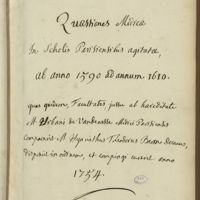 Quæstiones Medicæ
In Scholis Parisiensibus agitatæ,
ab anno 1590 ad annum 1610.
quas quidem, Facultatis jussu et hæreditate
M. Urbani de Vandenesse Medici Parisiensis
comparavit M. Hyacinthus Theodorus Baron Decanus,
disposuit in ordinem, et compingi curavit anno
1754.